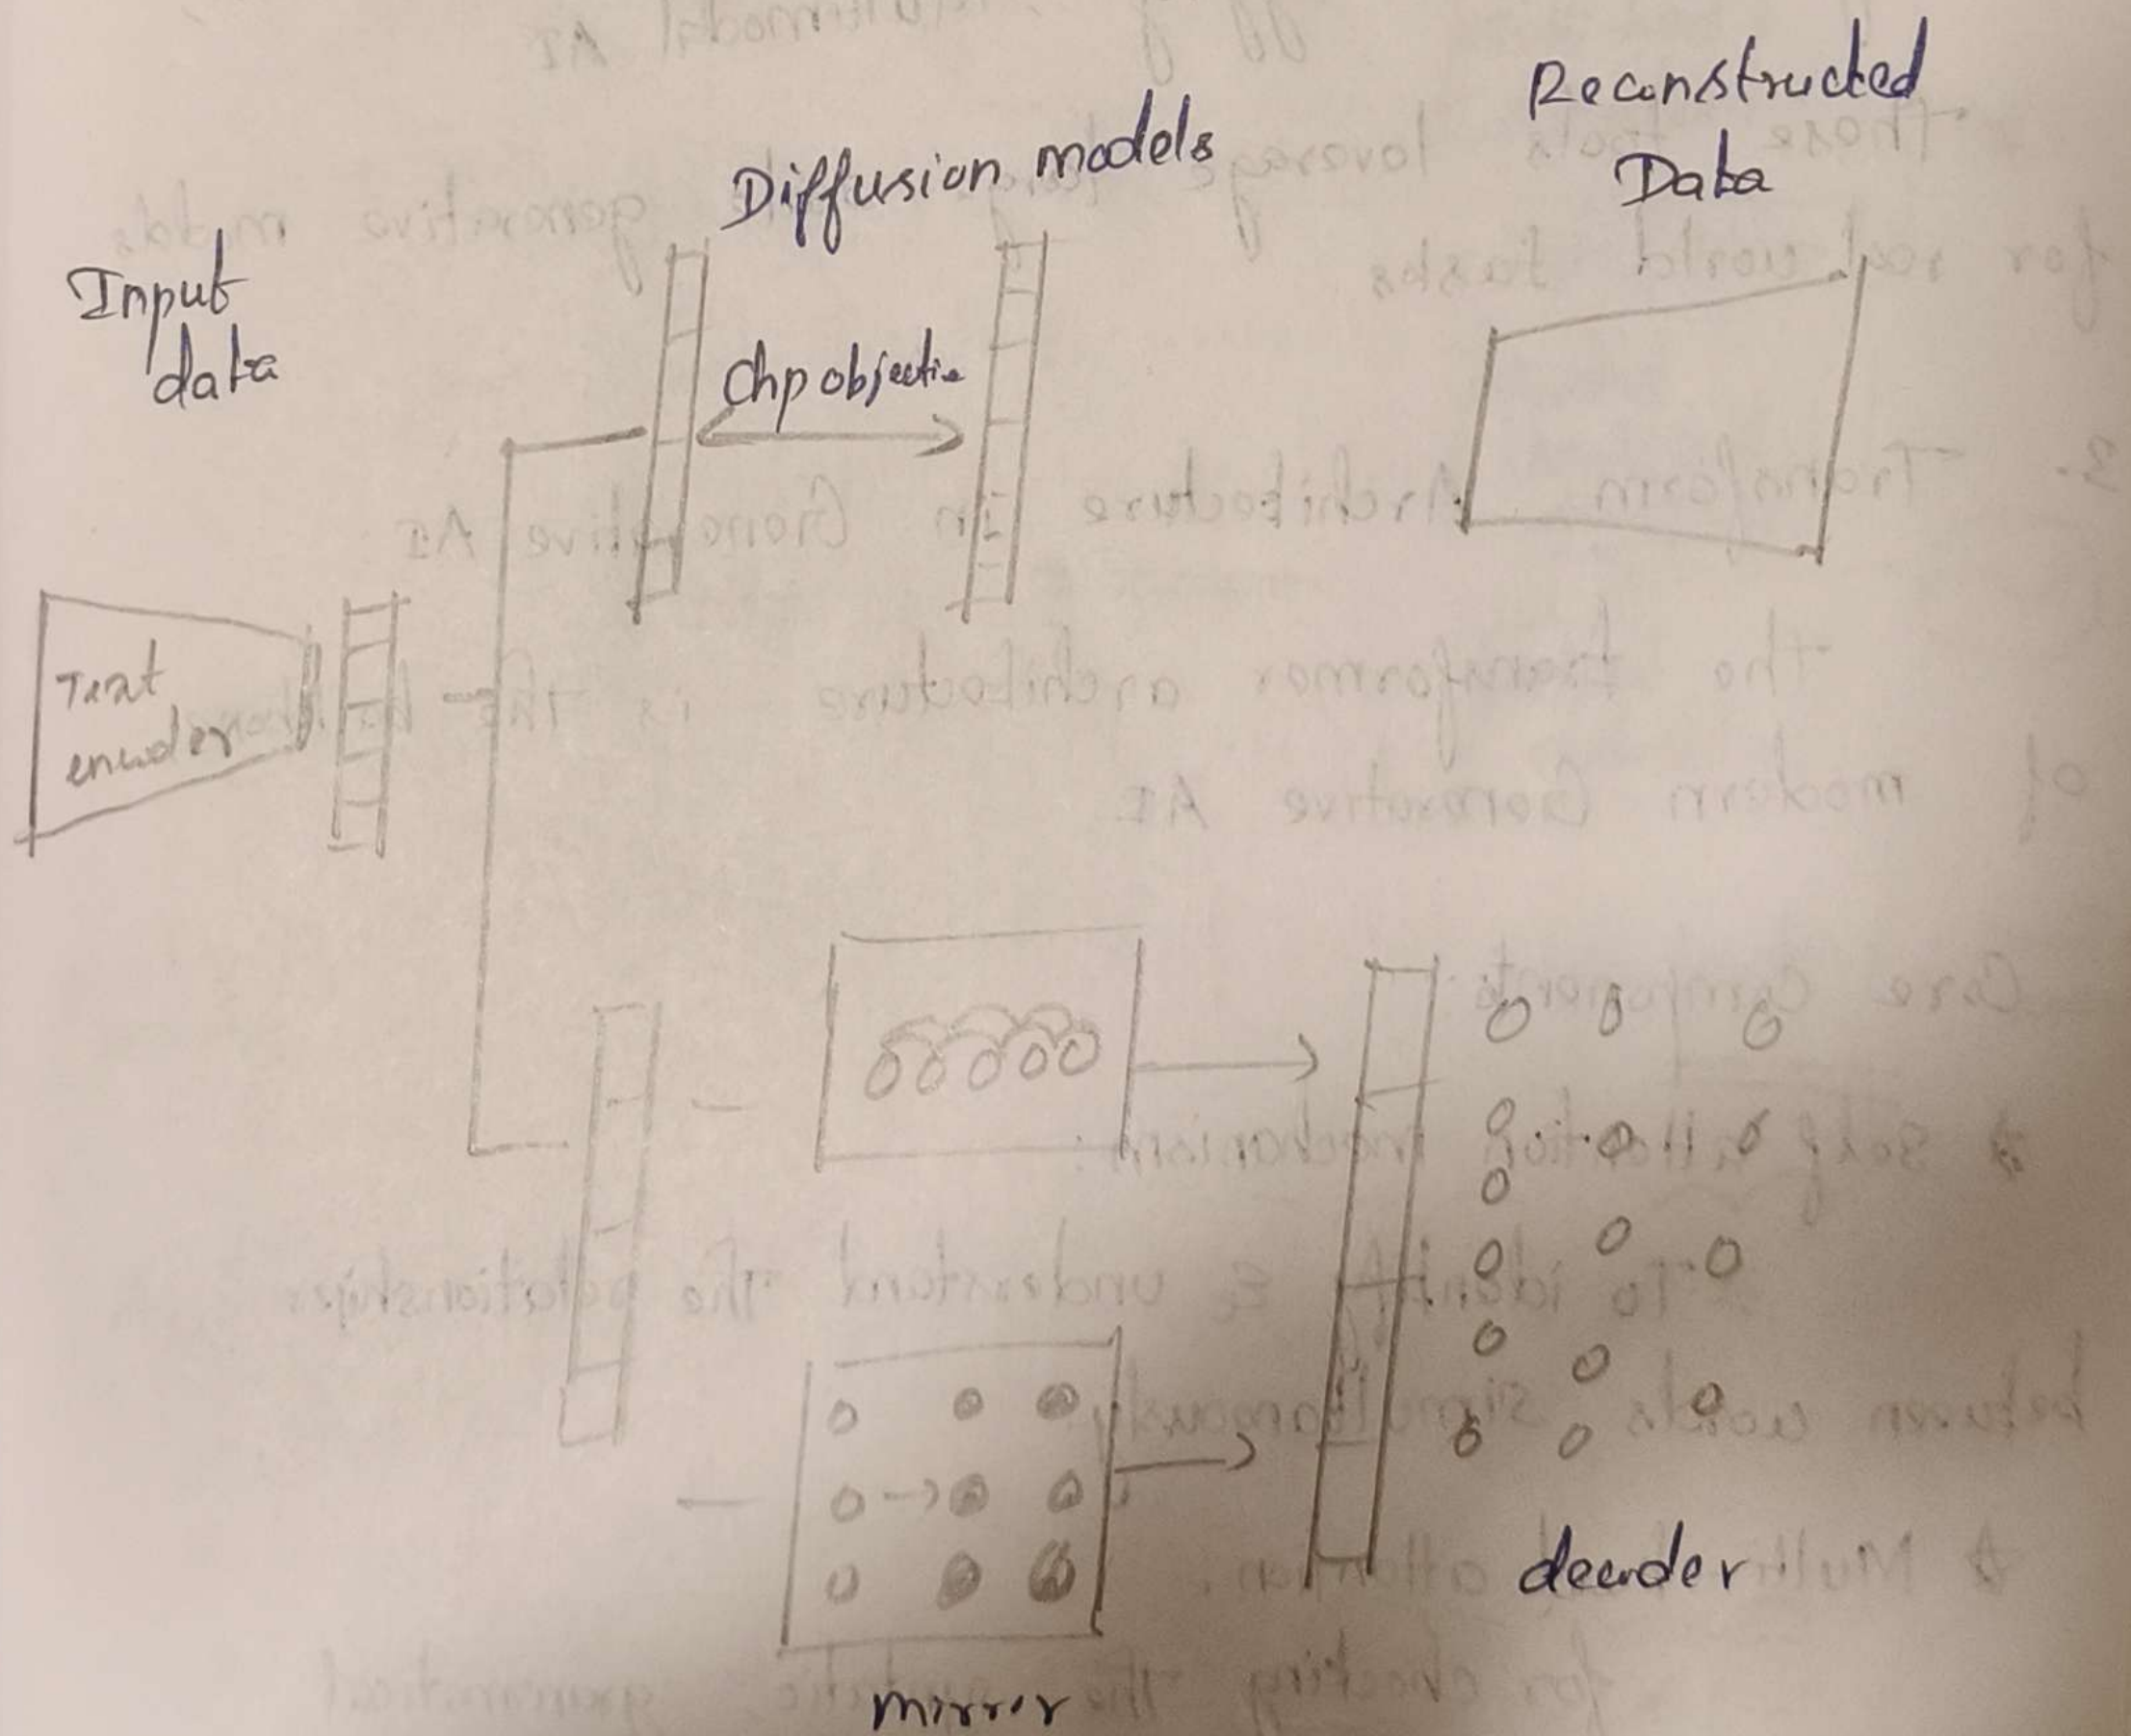 Reconstructed
Data
Diffusion models
Input
data
Chp objective
Text
encoder
decoder
mirror